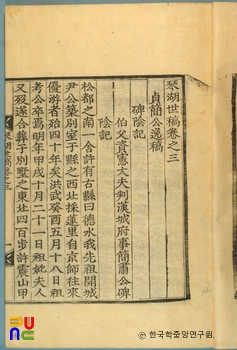 琴湖世稿卷之三
貞簡公逸稿
碑陰記
伯父資憲大夫判漢城府事簡肅公碑
陰記
松都之南一舍許有古縣曰德水我先祖開城
尹公築別室于縣之西北採蓮里自京師往來
優游者殆四十年矣洪武癸酉五月十八日祖
考公卒焉明年甲戌十月二十一日祖妣夫人
又歿遂合葬于別墅之東北四百步許震山甲
琴湖世稿卷之三
一
한국학중앙연구원